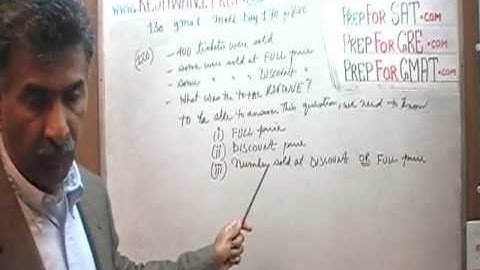 WWW.
PREP FOR SAT.COM
PREP FOR GRE.COM
PREP FOR GMAT.COM
130 GMAT Math
(120) - 400 tickets were sold
- some were sold at FULL price
- some " " " DISCOUNT "
- What was the total REVENUE?
To be able to answer this question, we need to know
(i) FULL price
(ii) DISCOUNT price
(iii) Number sold at DISCOUNT OR FULL price